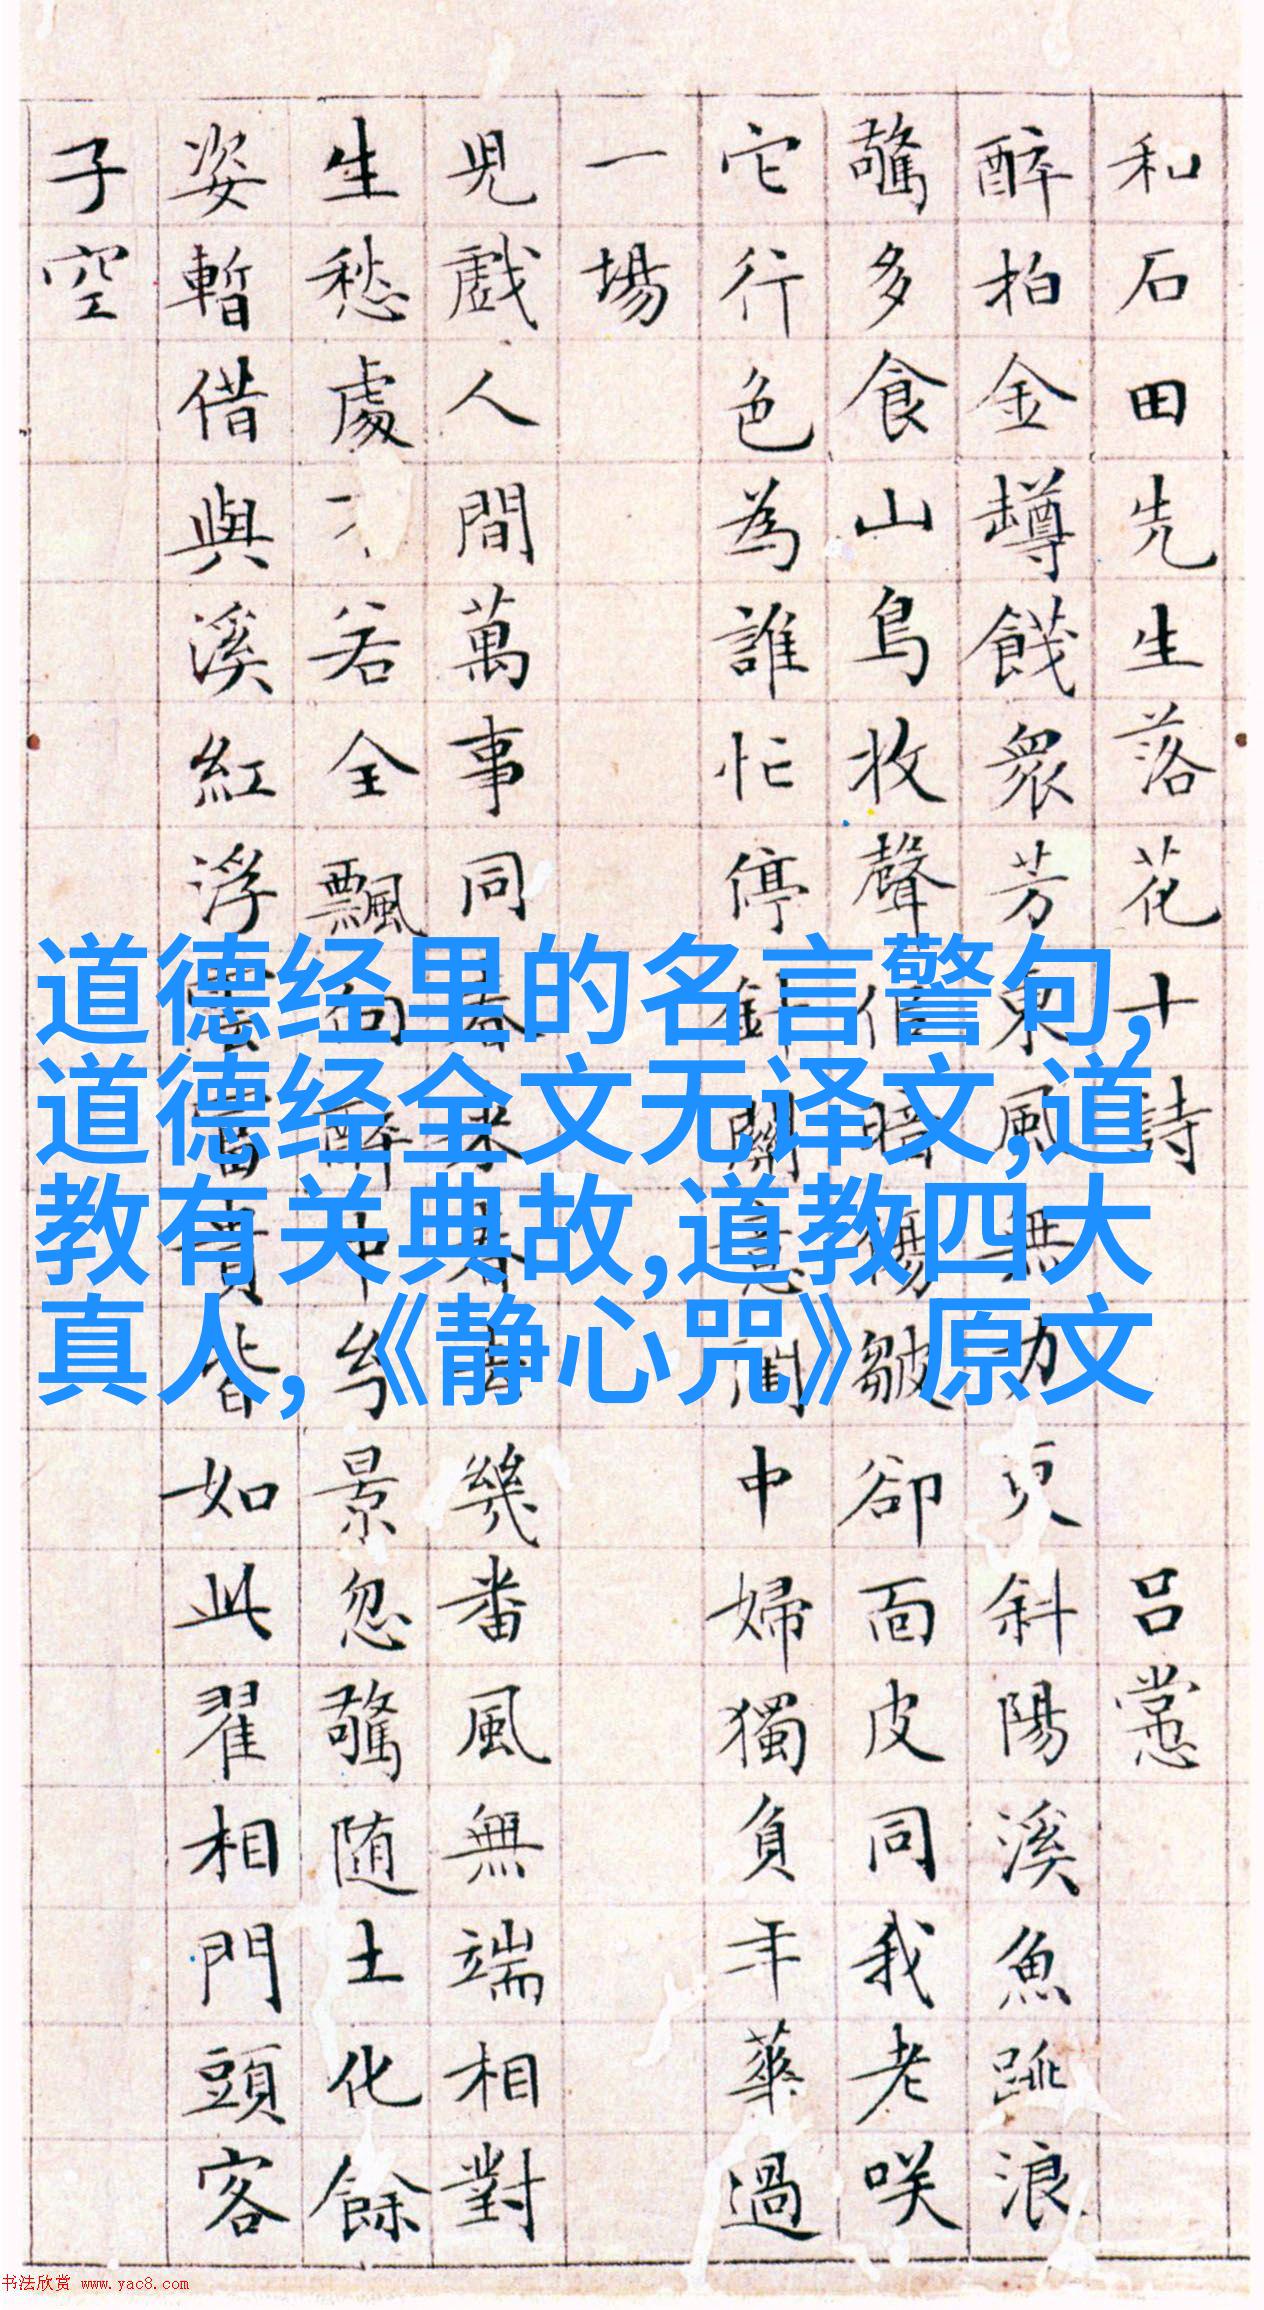 和石田先生落花十詩 吕㦂
醉拍金罇餞衆芳東風無力更斜陽溪魚跳浪
驚多食山鳥收聲但暗傷皺卻面皮同我老咲
它行色為誰忙停針意閨中婦獨負年華過
一場
兒戲人間萬事同春來春去幾番風無端相對
生愁處若全飄向醉中兮景忽驚随土化餘
姿暫借與溪紅浮雲富貴皆如此翟相門頭客
子空
道德经里的名言警句,
道德经全文无译文,道
教有关典故,道教四大
真人,《静心咒》原文
书法欣赏 www.yac8.com